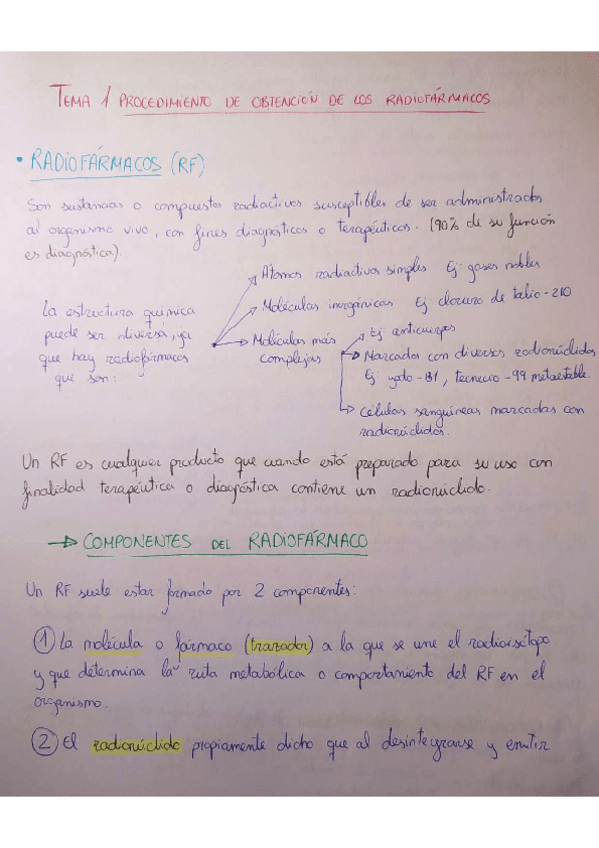 TEMA 1 PROCEDIMIENTO DE OBTENCIÓN DE LOS RADIOFÁRMACOS
• RADIOFÁRMACOS (RF)
Son sustancias o compuestos radiactivos susceptibles de ser administrados
al organismo vivo, con fines diagnósticos o terapéuticos. (90% de su función
es diagnóstica).
La estructura química
puede ser diversa, ya
que hay radiofármacos
que son:
Átomos radiactivos simples Ej gases nobles
Moléculas inorgánicas Ej cloruro de talio-210
Moléculas más
complejas
Ej anticuerpos
Marcados con diversos radionúclidos
Ej yodo-131, tecnecio-99 metaestable.
Células sanguíneas marcadas con
radionúclidos.
Un RF es cualquier producto que cuando está preparado para su uso con
finalidad terapéutica o diagóstica contiene un radionúclido.
→ COMPONENTES DEL RADIOFÁRMACO
Un RF suele estar formado por 2 componentes:
1 La molécula o fármaco (trazador) a la que se une el radioisótopo
y que determina la ruta metabólica o comportamiento del RF en el
organismo.
2 El radionúclido propiamente dicho que al desintegrarse y emitir